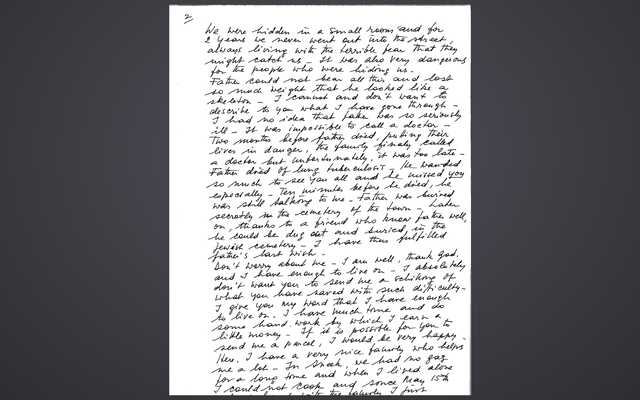 2
We were hidden in a small room and for
2 years we never went out into the street,
always living with the terrible fear that they
might catch us - It was also very dangerous
for the people who were hiding us.
Father could not bear all this and lost
so much weight that he looked like a
skeleton - I cannot and don't want to
describe to you what I have gone through -
I had no idea that father was so seriously
ill - It was impossible to call a doctor -
Two months before father died, putting their
lives in danger, the family finally called
a doctor but unfortunately, it was too late -
Father died of lung tuberculosis. He wanted
so much to see you all and he missed you
especially - Ten minutes before he died, he
was still talking to me - Father was buried
secretly in the cemetery of the town - Later
on, thanks to a friend who knew father well,
he could be dug out and buried, in the
Jewish cemetery - I have thus fulfilled
father's last wish -
Don't worry about me - I am well, thank God,
and I have enough to live on - I absolutely
don't want you to send me a schilling of
what you have saved with such difficulty -
I give you my word that I have enough
to live on. I have much time and do
some hand work by which I earn a
little money - If it is possible for you to
send me a parcel, I would be very happy -
Here, I have a very nice family who helps
me a lot - In we had no gas
for a long time and when I lived alone
I could not cook and since May 15th
with the family I first